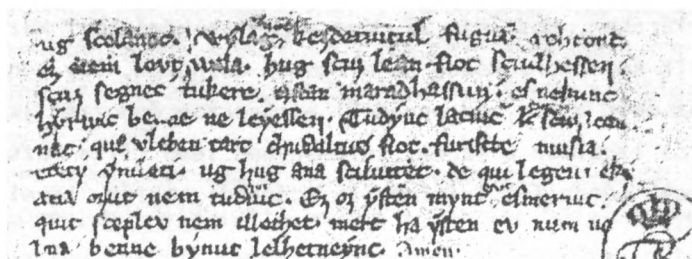 ug scolanoc. wylag kezdetuitul fugua. rohtonc
ez nem levt wala. hug scuz lean fiot sciulhessen.
scuz segnec tukere. tistan maradhassun. es nekunc
hyrunc benne ne leyessen. Tudyuc latiuc evt scuz lean
nac. qui vleben tart chudaltus fiot. furiscte musia.
etety ymleti. ug hug ana sciluttet. de qui legen
ata ozut nem tudiuc. Ez oz ysten mynt esmeriuc.
quit sceplev nem illethet. mert ha ysten ev num uo
lna benne bynut lelhetneync. Amen.